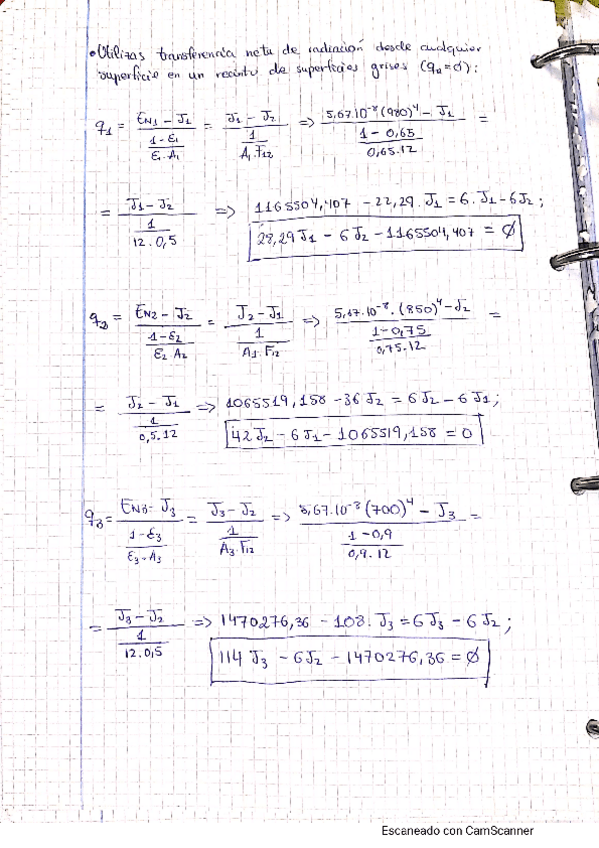 • Utilizas transferencia neta de radiación desde cualquier
superficie en un recinto de superficies grises (q_R = 0):
q1 = (EN1 - J1) / ((1-ε1)/(ε1·A1)) = (J1 - J2) / (1/(A1·F12)) => (5,67·10^-8 (980)^4 - J1) / ((1-0,65)/(0,65·12)) =
= (J1 - J2) / (1/(12·0,5)) => 1165504,407 - 22,29·J1 = 6·J1 - 6J2;
28,29J1 - 6J2 - 1165504,407 = Ø
q2 = (EN2 - J2) / ((1-ε2)/(ε2·A2)) = (J2 - J1) / (1/(A1·F12)) => (5,67·10^-8·(850)^4 - J2) / ((1-0,75)/(0,75·12)) =
= (J2 - J1) / (1/(0,5·12)) => 1065519,158 - 36J2 = 6J2 - 6J1;
42J2 - 6J1 - 1065519,158 = 0
q3 = (EN3 - J3) / ((1-ε3)/(ε3·A3)) = (J3 - J2) / (1/(A3·F12)) => (5,67·10^-8 (700)^4 - J3) / ((1-0,9)/(0,9·12)) =
= (J3 - J2) / (1/(12·0,5)) => 1470276,36 - 108·J3 = 6J3 - 6J2;
114J3 - 6J2 - 1470276,36 = Ø
Escaneado con CamScanner